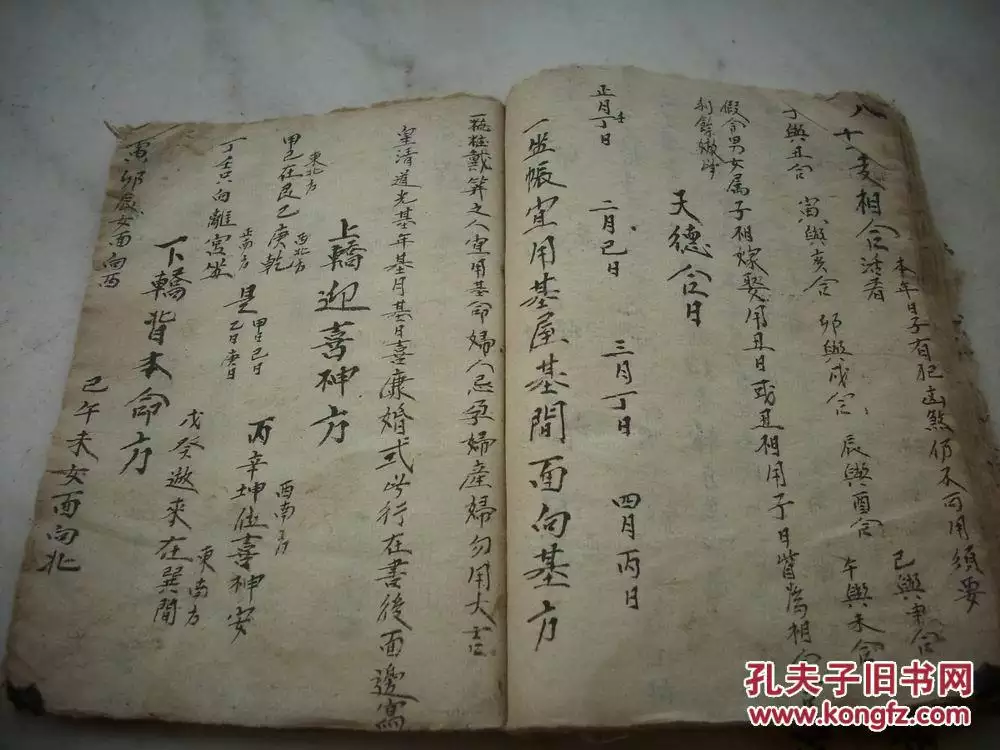 八 十二支相合活看 本年日子有犯凶煞仍不可用須要
子與丑合 寅與亥合 卯與戌合 辰與酉合 午與未合 巳與申合
假令男女属子相嫁娶用丑日或丑相用子日皆為相合
天德合日
正月丁日 二月巳日 三月丁日 四月丙日
一坐帳宜用基屋基間面向基方
一梳粧戴笄之人宜用基命婦人忌孕婦產婦勿用大吉
皇清道光基年基月基日喜
婚式此行在書後面邊寫
上轎迎喜神方
東北方 西北方
甲己在艮乙庚乾
丙辛坤位喜神安
西南方
丁壬只向離宮坐
正南方
是
甲日己日
乙日庚日
戊癸遊來在巽間
東南方
下轎背本命方
寅卯辰女面向西
巳午未女面向北
孔夫子旧书网
www.kongfz.com